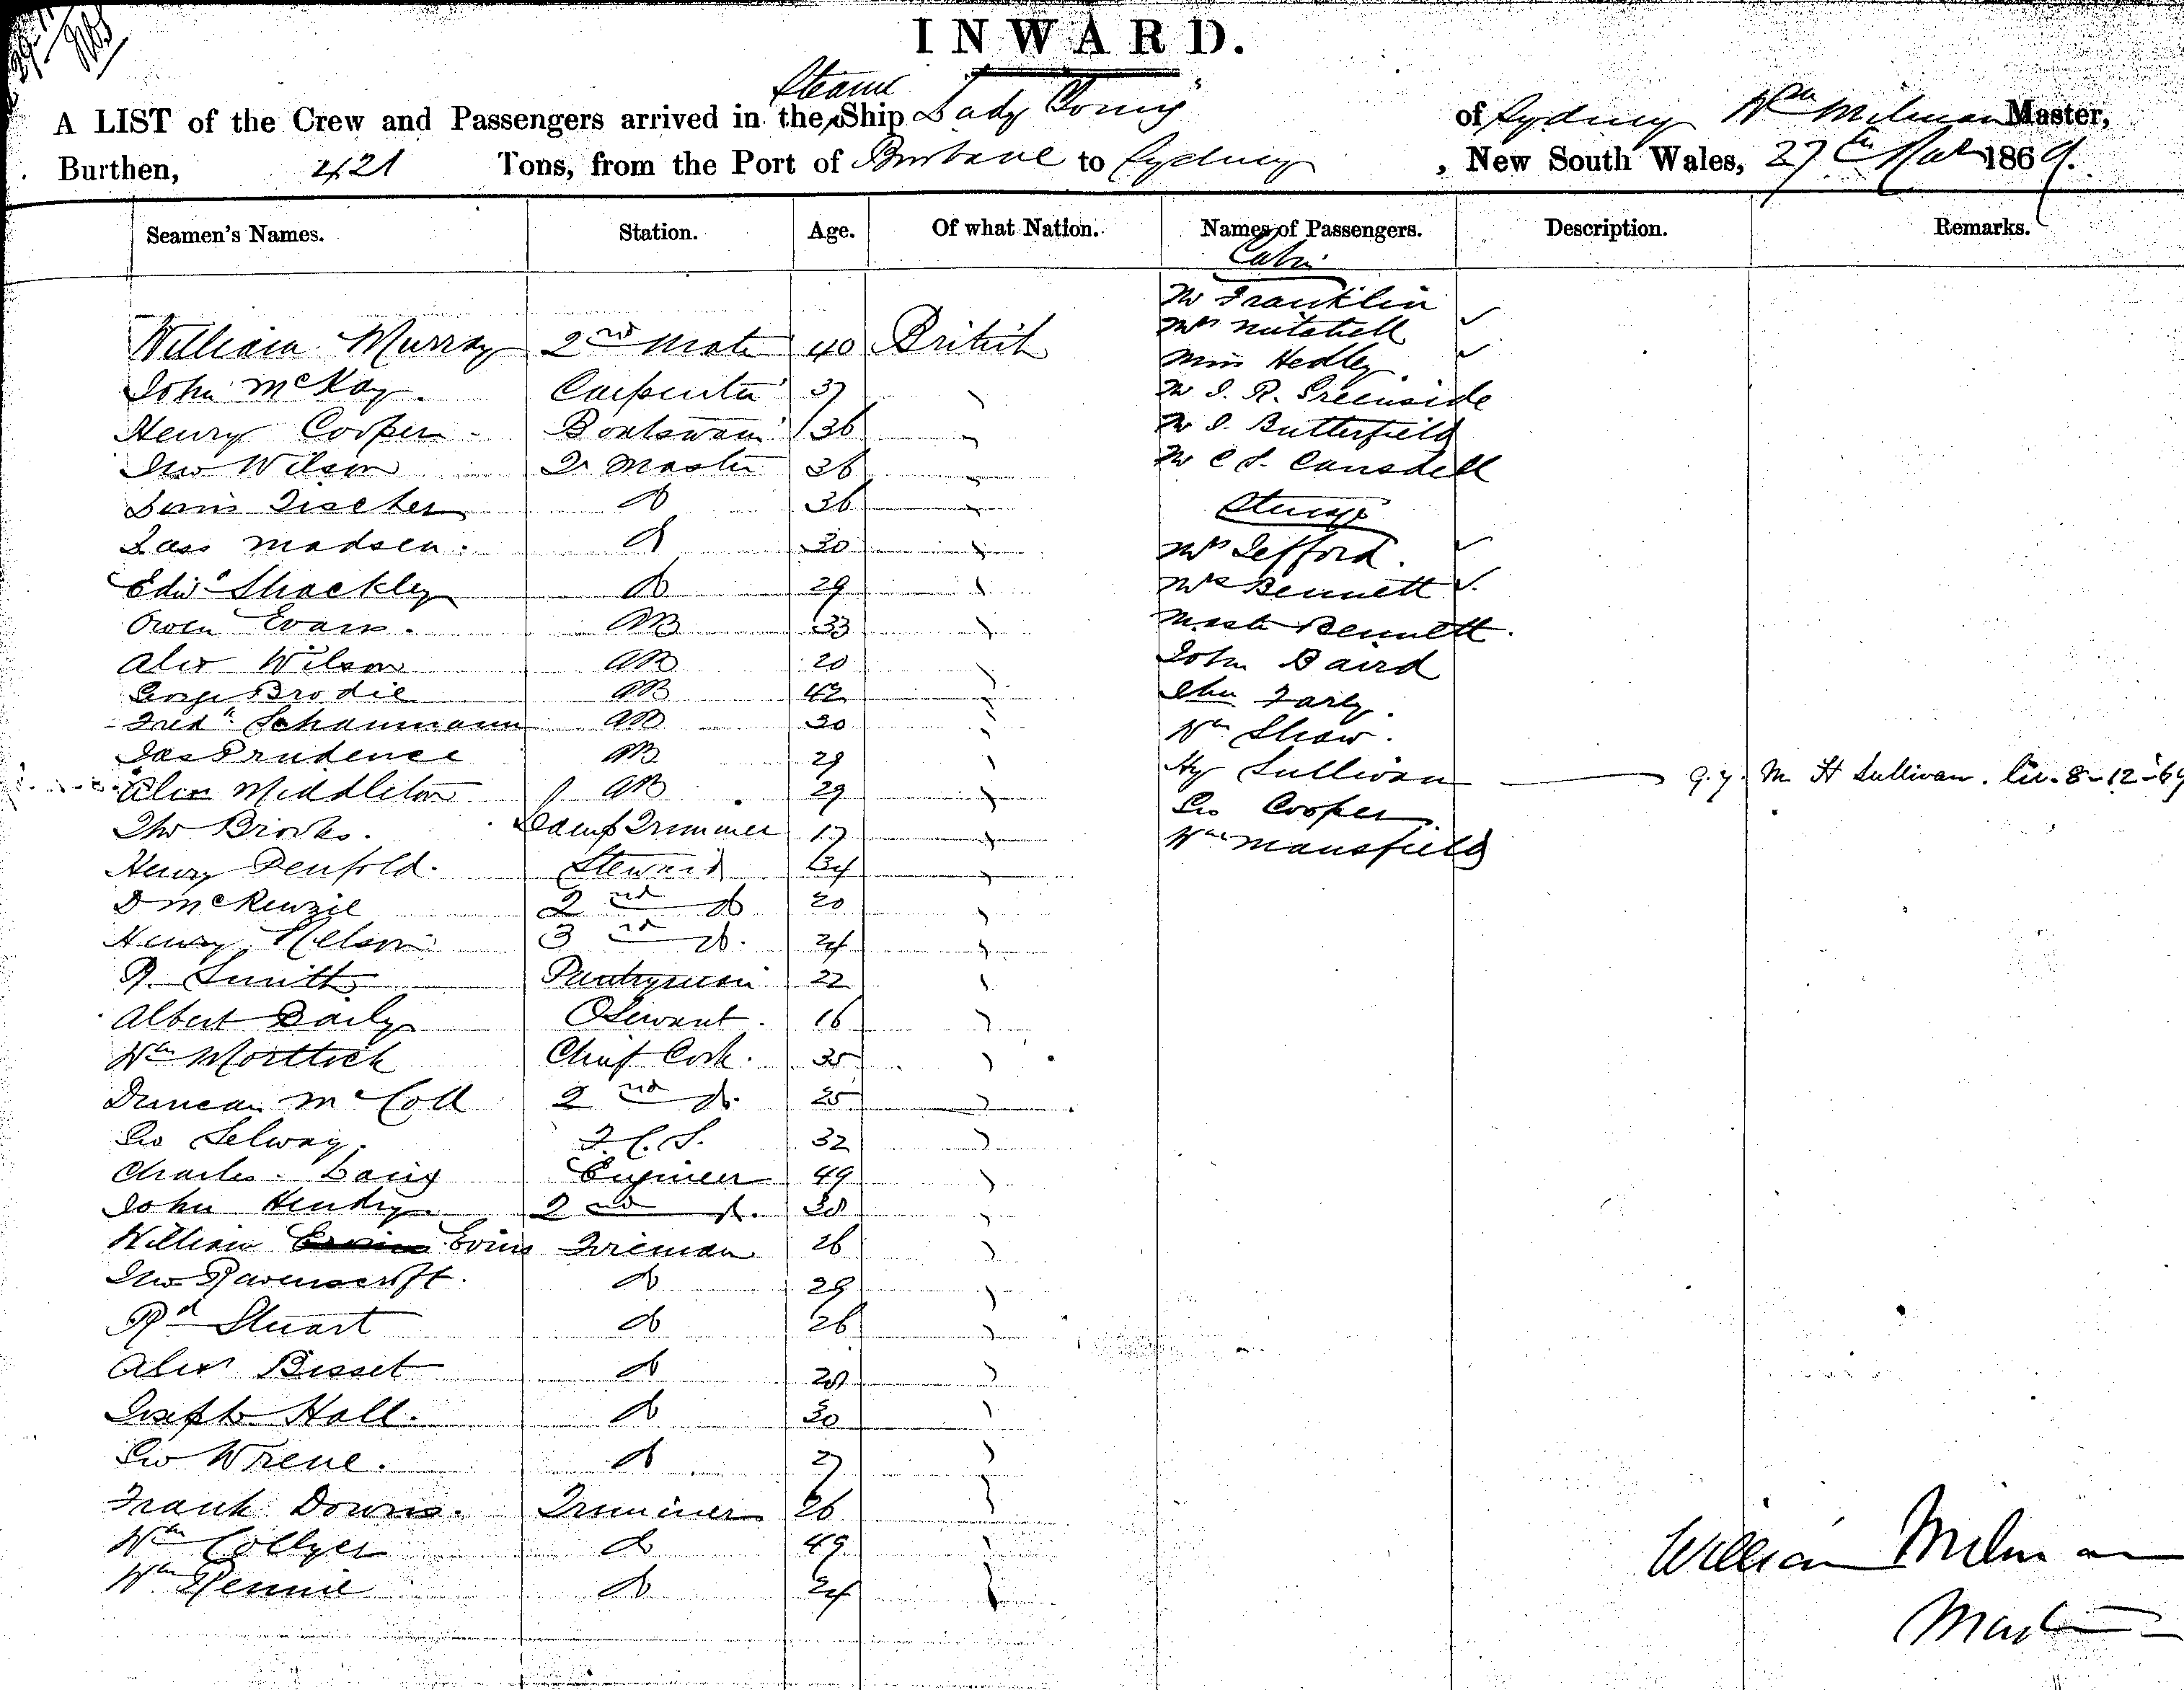 INWARD.
Steam
A LIST of the Crew and Passengers arrived in the Ship Lady Young of Sydney Wm Milman Master,
Burthen, 421 Tons, from the Port of Brisbane to Sydney, New South Wales, 27th Mar 1869.
Seamen's Names. Station. Age. Of what Nation. Names of Passengers. Description. Remarks.
Cabin
Mr Franklin
William Murray 2nd Mate 40 British
Mrs Nutshell
Miss Hedley
John McKay. Carpenter 37 "
Mr J. R. Greenside
Henry Cooper Boatswain 36 "
Mr J. Butterfield
Jno Wilson Qr Master 36 "
Mr C S. Cansdell
Tischer do 36 "
Steerage
Lass Madsen. do 30 "
Mrs Jefford.
Edwd Shackley do 29 "
Mrs Bennett
Owen Evans. AB 33 "
Mastr Bennett.
Alex Wilson AB 20 "
John Baird
George Brodie AB 42 "
Farly.
Fredk Schaumann AB 30 "
Wm Shaw.
Jas Prudence AB 29 "
Hy Sullivan q.y. M H Sullivan. 8-12-69
Alex Middleton AB 29 "
Geo Cooper.
Brooks. Lamp Trimmer 17 "
Wm Mansfield
Henry Penfold. Steward 34 "
D McKenzie 2nd do 20 "
Henry Nelson 3rd do. 24 "
R. Smith Pantryman 22 "
Albert Baily 16 "
Wm Mortlock Chief Cook. 35 "
Duncan McColl 2nd do. 25 "
Geo Selway. 32 "
Charles Laing Engineer 49 "
John Hendry 2nd do. 30 "
William Evins Fireman 26 "
Jno Ravenscroft. do 29 "
Rd Stuart do 26 "
Alexr Bisset do "
Joseph Hall. do 30 "
Geo Wrene. do 27 "
Frank Downs. Trimmer 26 "
Wm Collyer do 49 "
Wm Rennie do 24 "
William Milman
Master